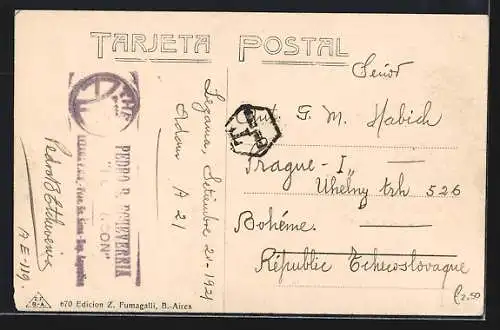 TARJETA POSTAL
Señor
Ant. G. M. Habich
Prague - I.
Uhelny trh 526
Bohéme.
Républic Tchecoslovaque
Lezama, Setiembre 21-1921
Adam A 21
THE
PEDRO B. ECHEVERRIA
Pedro B Etcheverria
A E-119.
T
670 Edicion Z. Fumagalli, B.-Aires
Z.F.
B-A.
€2.50